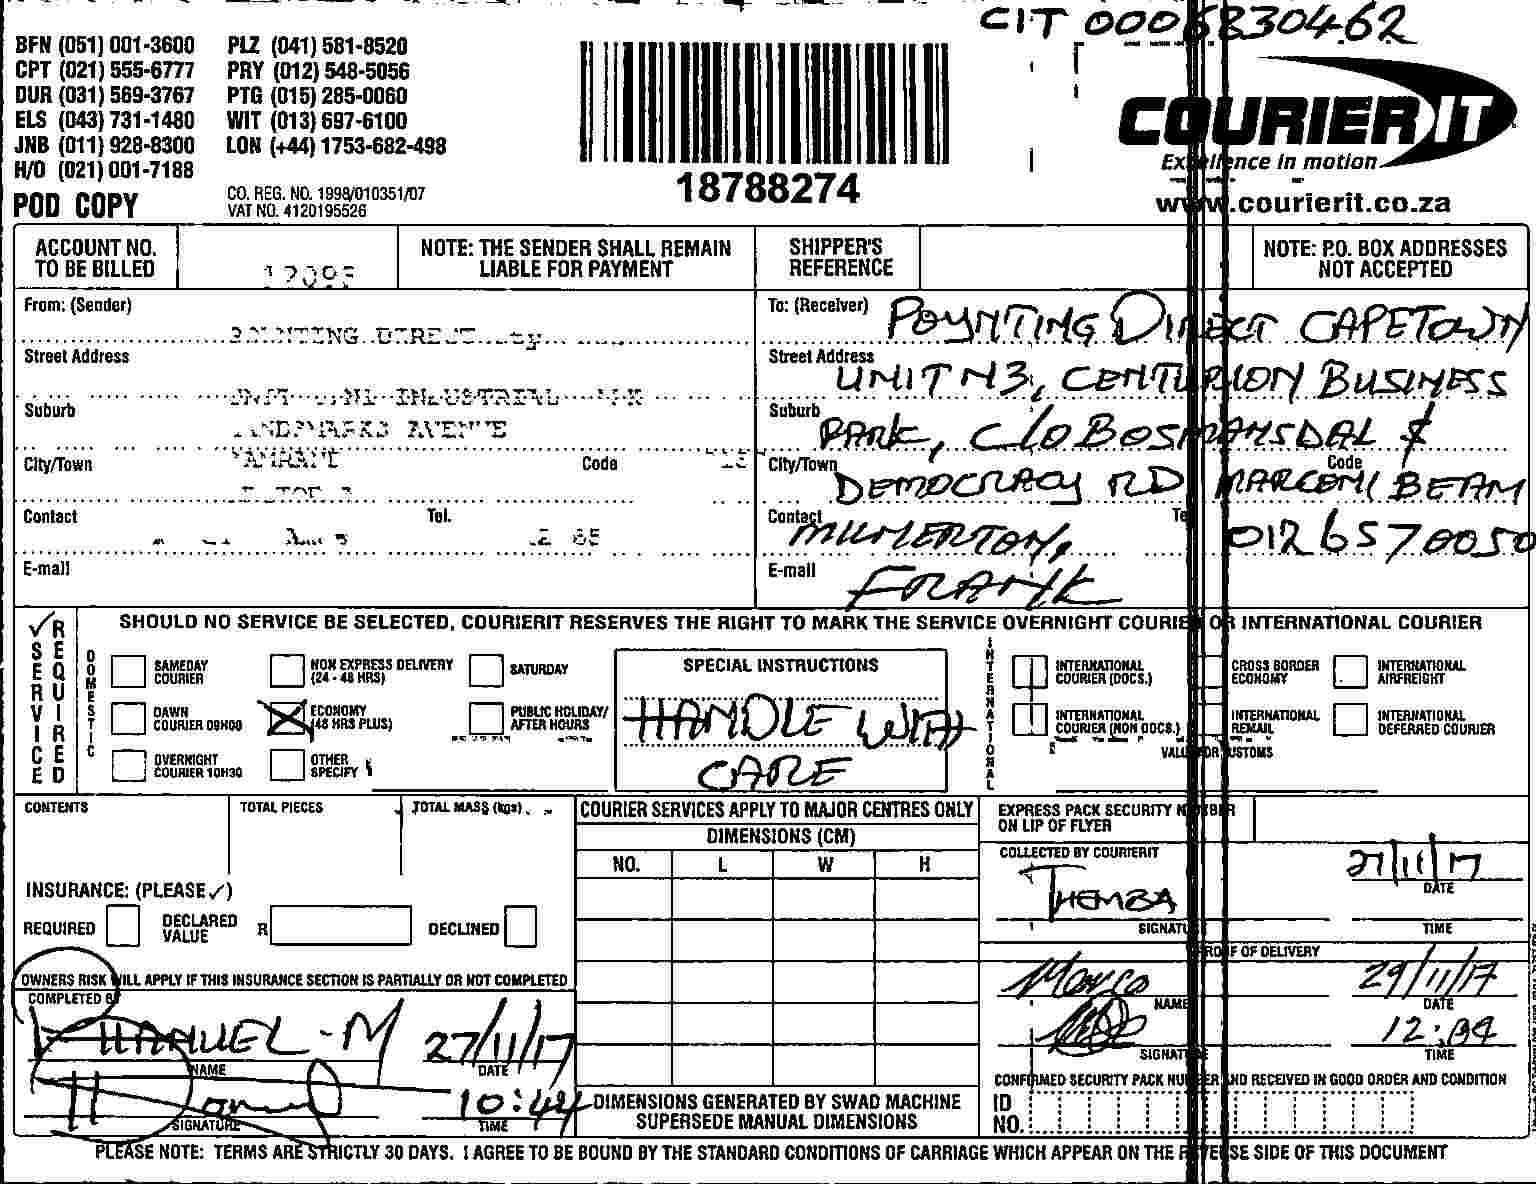 CIT 00068304.62
BFN (051) 001-3600 PLZ (041) 581-8520
CPT (021) 555-6777 PRY (012) 548-5056
DUR (031) 569-3767 PTG (015) 285-0060
ELS (043) 731-1480 WIT (013) 697-6100
JNB (011) 928-8300 LON (+44) 1753-682-498
H/O (021) 001-7188
POD COPY
CO. REG. NO. 1998/010351/07
VAT NO. 4120195526
18788274
COURIER IT
Excellence in motion
www.courierit.co.za
ACCOUNT NO. TO BE BILLED
12095
NOTE: THE SENDER SHALL REMAIN LIABLE FOR PAYMENT
SHIPPER'S REFERENCE
NOTE: P.O. BOX ADDRESSES NOT ACCEPTED
From: (Sender)
POYNTING DIRECT
Street Address
INDUSTRIAL
Suburb
LANDMARKS AVENUE
City/Town
Code
Contact
Tel.
E-mail
To: (Receiver) POYNTING DIRECT CAPETOWN
Street Address UNIT N3, CENTURION BUSINESS
Suburb PARK, C/O BOSMANSDAL &
City/Town Code
DEMOCRACY RD MARCONI BEAM
Contact MILNERTON, Te 0126570050
E-mail FRANK
SHOULD NO SERVICE BE SELECTED, COURIERIT RESERVES THE RIGHT TO MARK THE SERVICE OVERNIGHT COURIER OR INTERNATIONAL COURIER
✓ SERVICE REQUIRED
DOMESTIC
SAMEDAY COURIER
NON EXPRESS DELIVERY (24 - 48 HRS)
SATURDAY
DAWN COURIER 09H00
ECONOMY (48 HRS PLUS)
PUBLIC HOLIDAY/ AFTER HOURS
OVERNIGHT COURIER 10H30
OTHER SPECIFY
SPECIAL INSTRUCTIONS
HANDLE WITH
CARE
INTERNATIONAL
INTERNATIONAL COURIER (DOCS.)
CROSS BORDER ECONOMY
INTERNATIONAL AIRFREIGHT
INTERNATIONAL COURIER (NON DOCS.)
INTERNATIONAL REMAIL
INTERNATIONAL DEFERRED COURIER
VALUE FOR CUSTOMS
CONTENTS
TOTAL PIECES
TOTAL MASS (kgs)
INSURANCE: (PLEASE ✓)
REQUIRED
DECLARED VALUE R
DECLINED
OWNERS RISK WILL APPLY IF THIS INSURANCE SECTION IS PARTIALLY OR NOT COMPLETED
COMPLETED BY
HANUEL-M 27/11/17
NAME DATE
10:44
SIGNATURE TIME
COURIER SERVICES APPLY TO MAJOR CENTRES ONLY
DIMENSIONS (CM)
NO. L W H
DIMENSIONS GENERATED BY SWAD MACHINE
SUPERSEDE MANUAL DIMENSIONS
EXPRESS PACK SECURITY NUMBER
ON LIP OF FLYER
COLLECTED BY COURIERIT
THEMBA 27/11/17
DATE
SIGNATURE TIME
PROOF OF DELIVERY
29/11/17
NAME DATE
12:34
SIGNATURE TIME
CONFIRMED SECURITY PACK NUMBER AND RECEIVED IN GOOD ORDER AND CONDITION
ID NO.
PLEASE NOTE: TERMS ARE STRICTLY 30 DAYS. I AGREE TO BE BOUND BY THE STANDARD CONDITIONS OF CARRIAGE WHICH APPEAR ON THE REVERSE SIDE OF THIS DOCUMENT